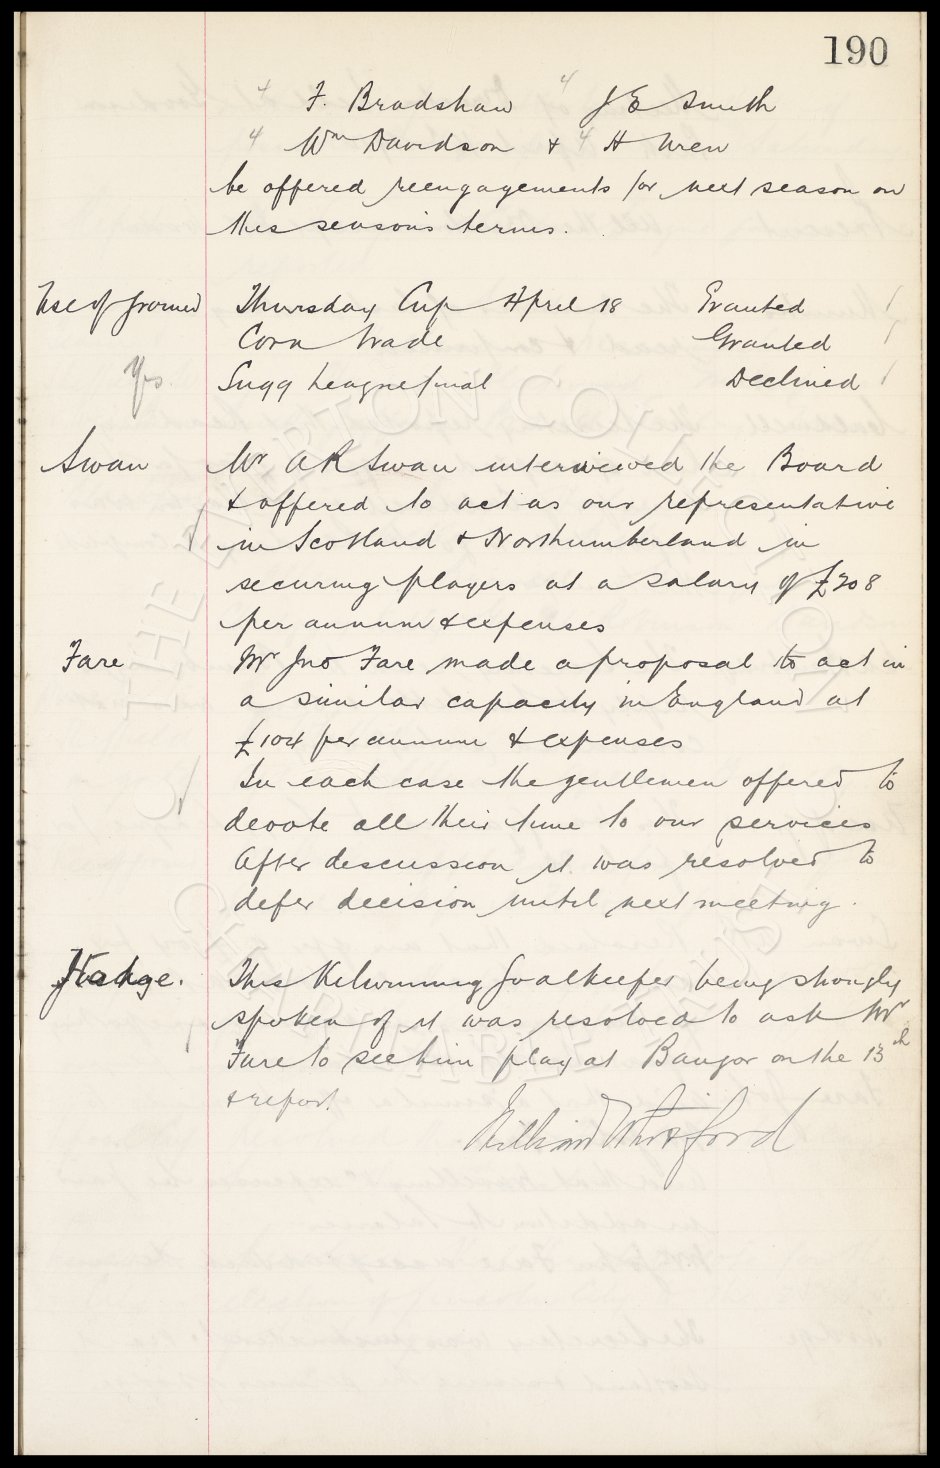 190
4 F. Bradshaw 4 J E Smith
4 Wm Davidson & 4 H Wren
be offered reengagements for next season on
this season's terms.
Use of ground Thursday Cup April 18 Granted
Corn Trade Granted
Yes. Sugg League final Declined
Swan Mr A R Swan interviewed the Board
& offered to act as our representative
in Scotland & Northumberland in
securing players at a salary of £208
per annum & expenses
Fare Mr Jno Fare made a proposal to act in
a similar capacity in England at
£104 per annum & expenses
In each case the gentlemen offered to
devote all their time to our services
After discussion it was resolved to
defer decision until next meeting.
Hodge. This Kilwinning Goalkeeper being strongly
spoken of it was resolved to ask Mr
Fare to see him play at Bangor on the 13th
& report.
William Whitford